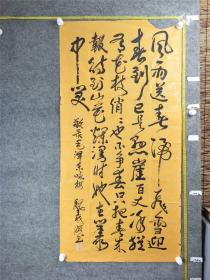 風雨送春歸飛雪迎
春到已是懸崖百丈冰猶
有花枝俏〻也不争春只把春来
報待到山花爛漫時她在叢
中笑
毛澤東詠梅